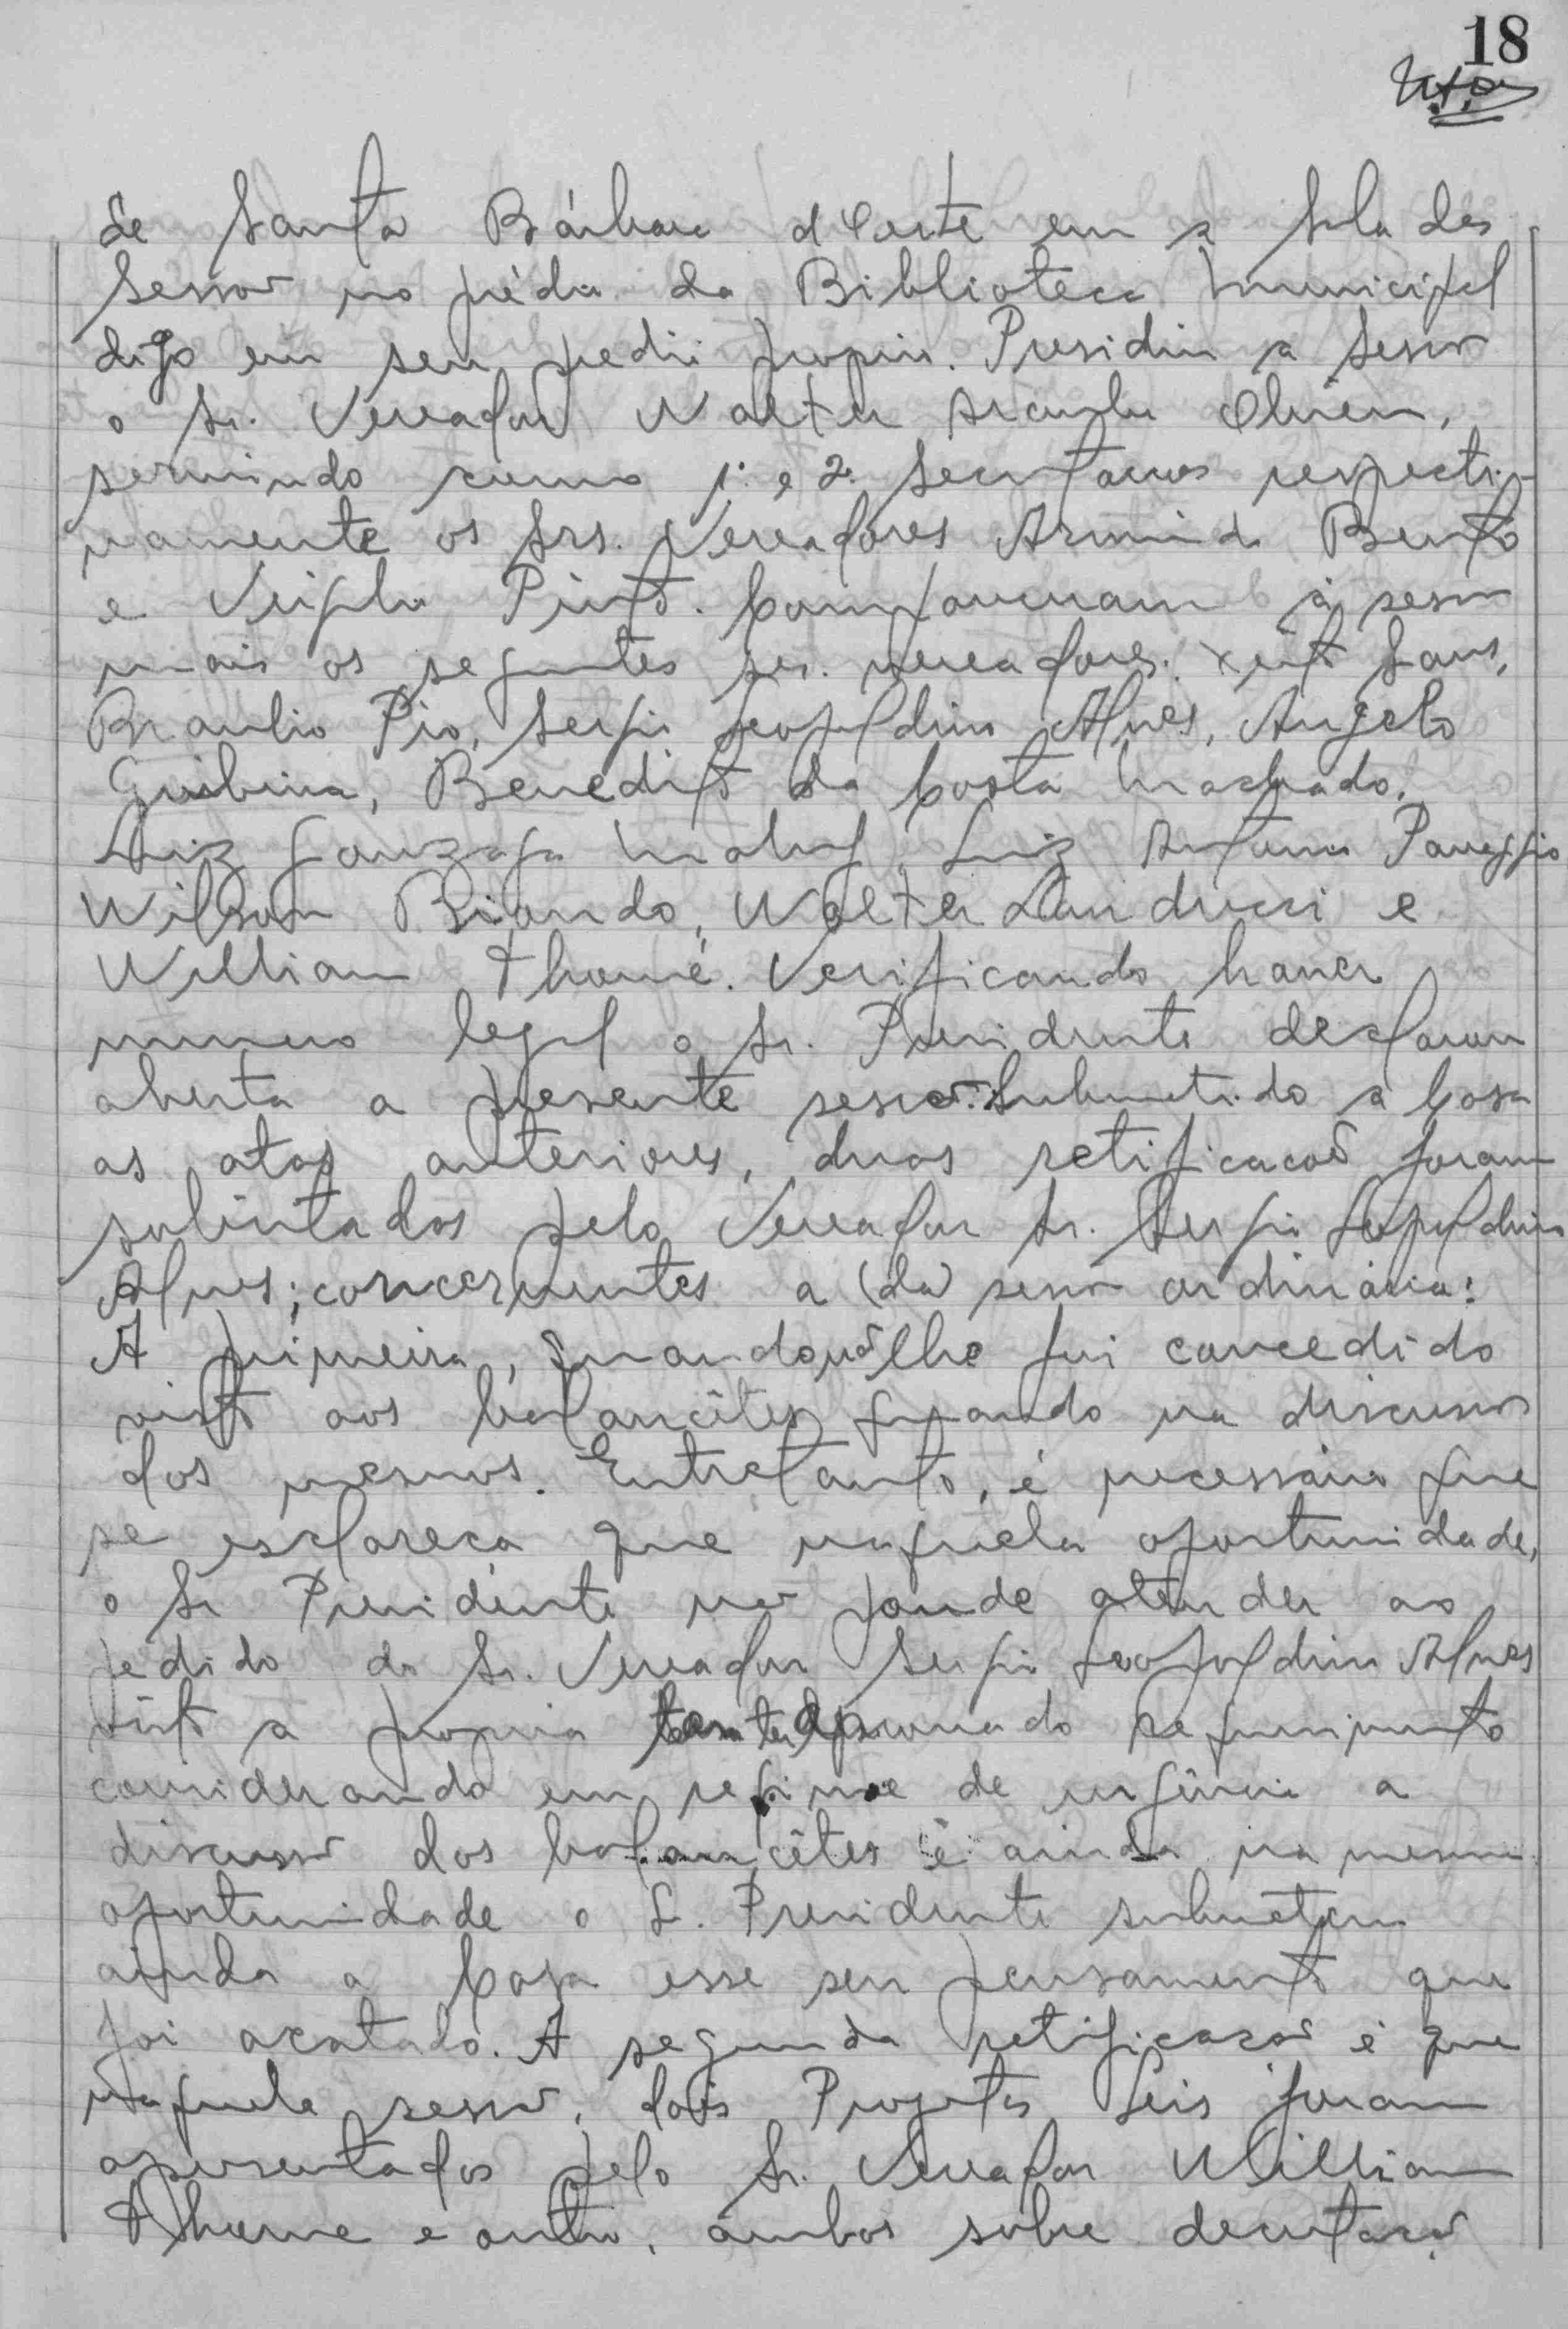 18
de Santa Bárbara d'Oeste em a sala das
sessões no prédio da Biblioteca Municipal
digo em seu predio proprio. Presidiu a sessão
o Sr. Vereador Walter
servindo como 1º e 2º Secretarios respecti-
vamente os Srs. Vereadores Armindo Bento
e Virgilio Pinto. Compareceram à sessão
mais os seguintes srs. vereadores: Xisto
Braulio Pio, Sergio Leopoldino Alves, Angelo
Giubina, Benedito da Costa Machado,
Luiz Gonzaga Luiz Antonio Panaggio
Wilson Biondo, Walter Landucci e
William Thomé. Verificando haver
numero legal o Sr. Presidente declarou
aberta a presente sessão. Submetido a Casa
as atas anteriores, duas retificações foram
solicitadas pelo Vereador Sr. Sergio Leopoldino
Alves; concernentes a (da) sessão ordinária:
A primeira, quando não lhe foi concedido
visto aos balancêtes quando na discussão
dos mesmos. Entretanto, é necessário que
se esclareça que naquela oportunidade,
o Sr Presidente não poude atender ao
pedido do Sr. Vereador Sergio Leopoldino Alves
visto a propria Casa ter aprovado requerimento
considerando em regime de urgência a
discussão dos balancêtes e ainda na mesma
oportunidade o S. Presidente submeteu
ainda a Casa esse seu pensamento que
foi acatado. A segunda retificação é que
naquela sessão, dois Projetos Leis foram
apresentados pelo Sr. Vereador William
Thome e outro, ambos sobre decretação